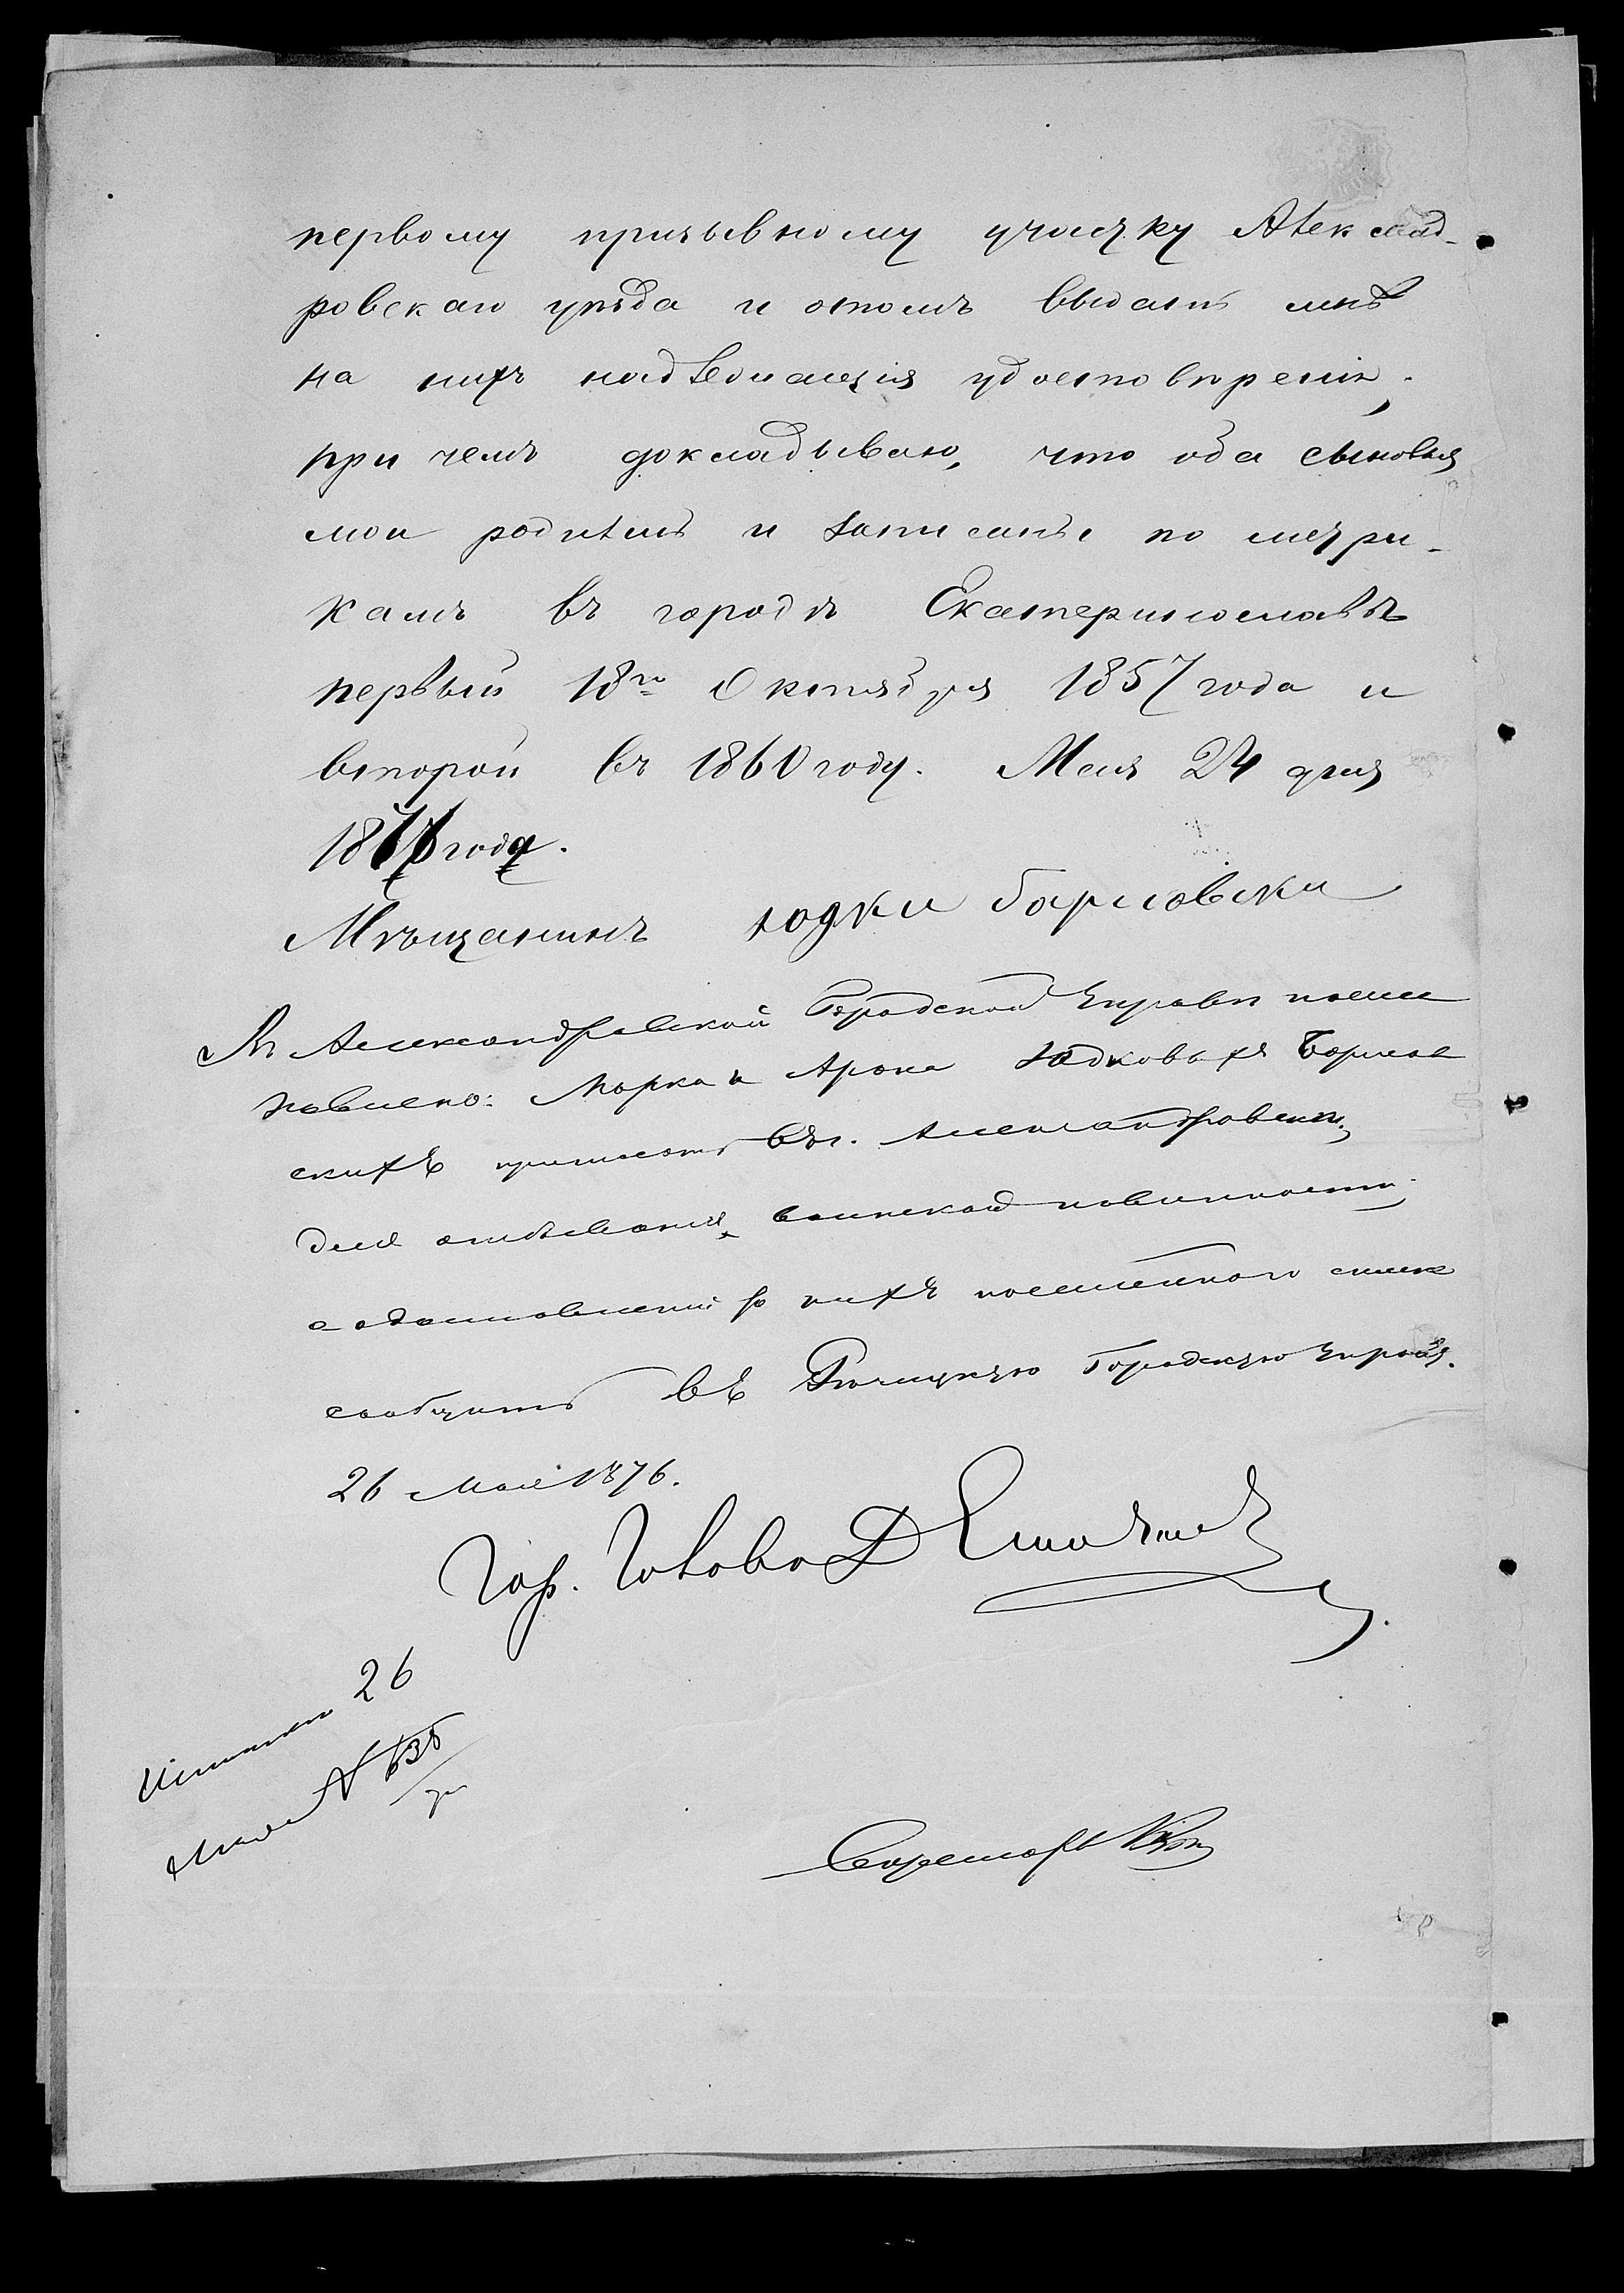 первому призывному участку Александ-
ровскаго уѣзда и отомъ выдать мнѣ
на нихъ надлежащія удостовѣренія;
при чемъ докладываю, что оба сыновья
мои родились и записаны по метри-
камъ въ городѣ Екатеринославѣ
первый 18го Октября 1857 года и
второй въ 1860 году. Мая 24 дня
1876 года.
Мѣщанинъ Юдки Барковски
Въ Александровской Городской Управѣ поста
новлено: Марка и Арона Юдковыхъ
скихъ приписать въ г. Александровскѣ,
для отбыванія воинской повинности;
о нихъ посемейнаго списка
сообщить въ Рѣчицкую Городскую Управу.
26 Мая 1876.
Гор. Голова Д
26
Мая №
Секретарь